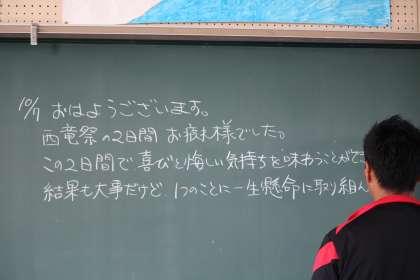 10/7 おはようございます。
西竜祭の2日間 お疲れ様でした。
この2日間で、喜びと悔しい気持ちを味わうことができ
結果も大事だけど、1つのことに一生懸命に取り組ん